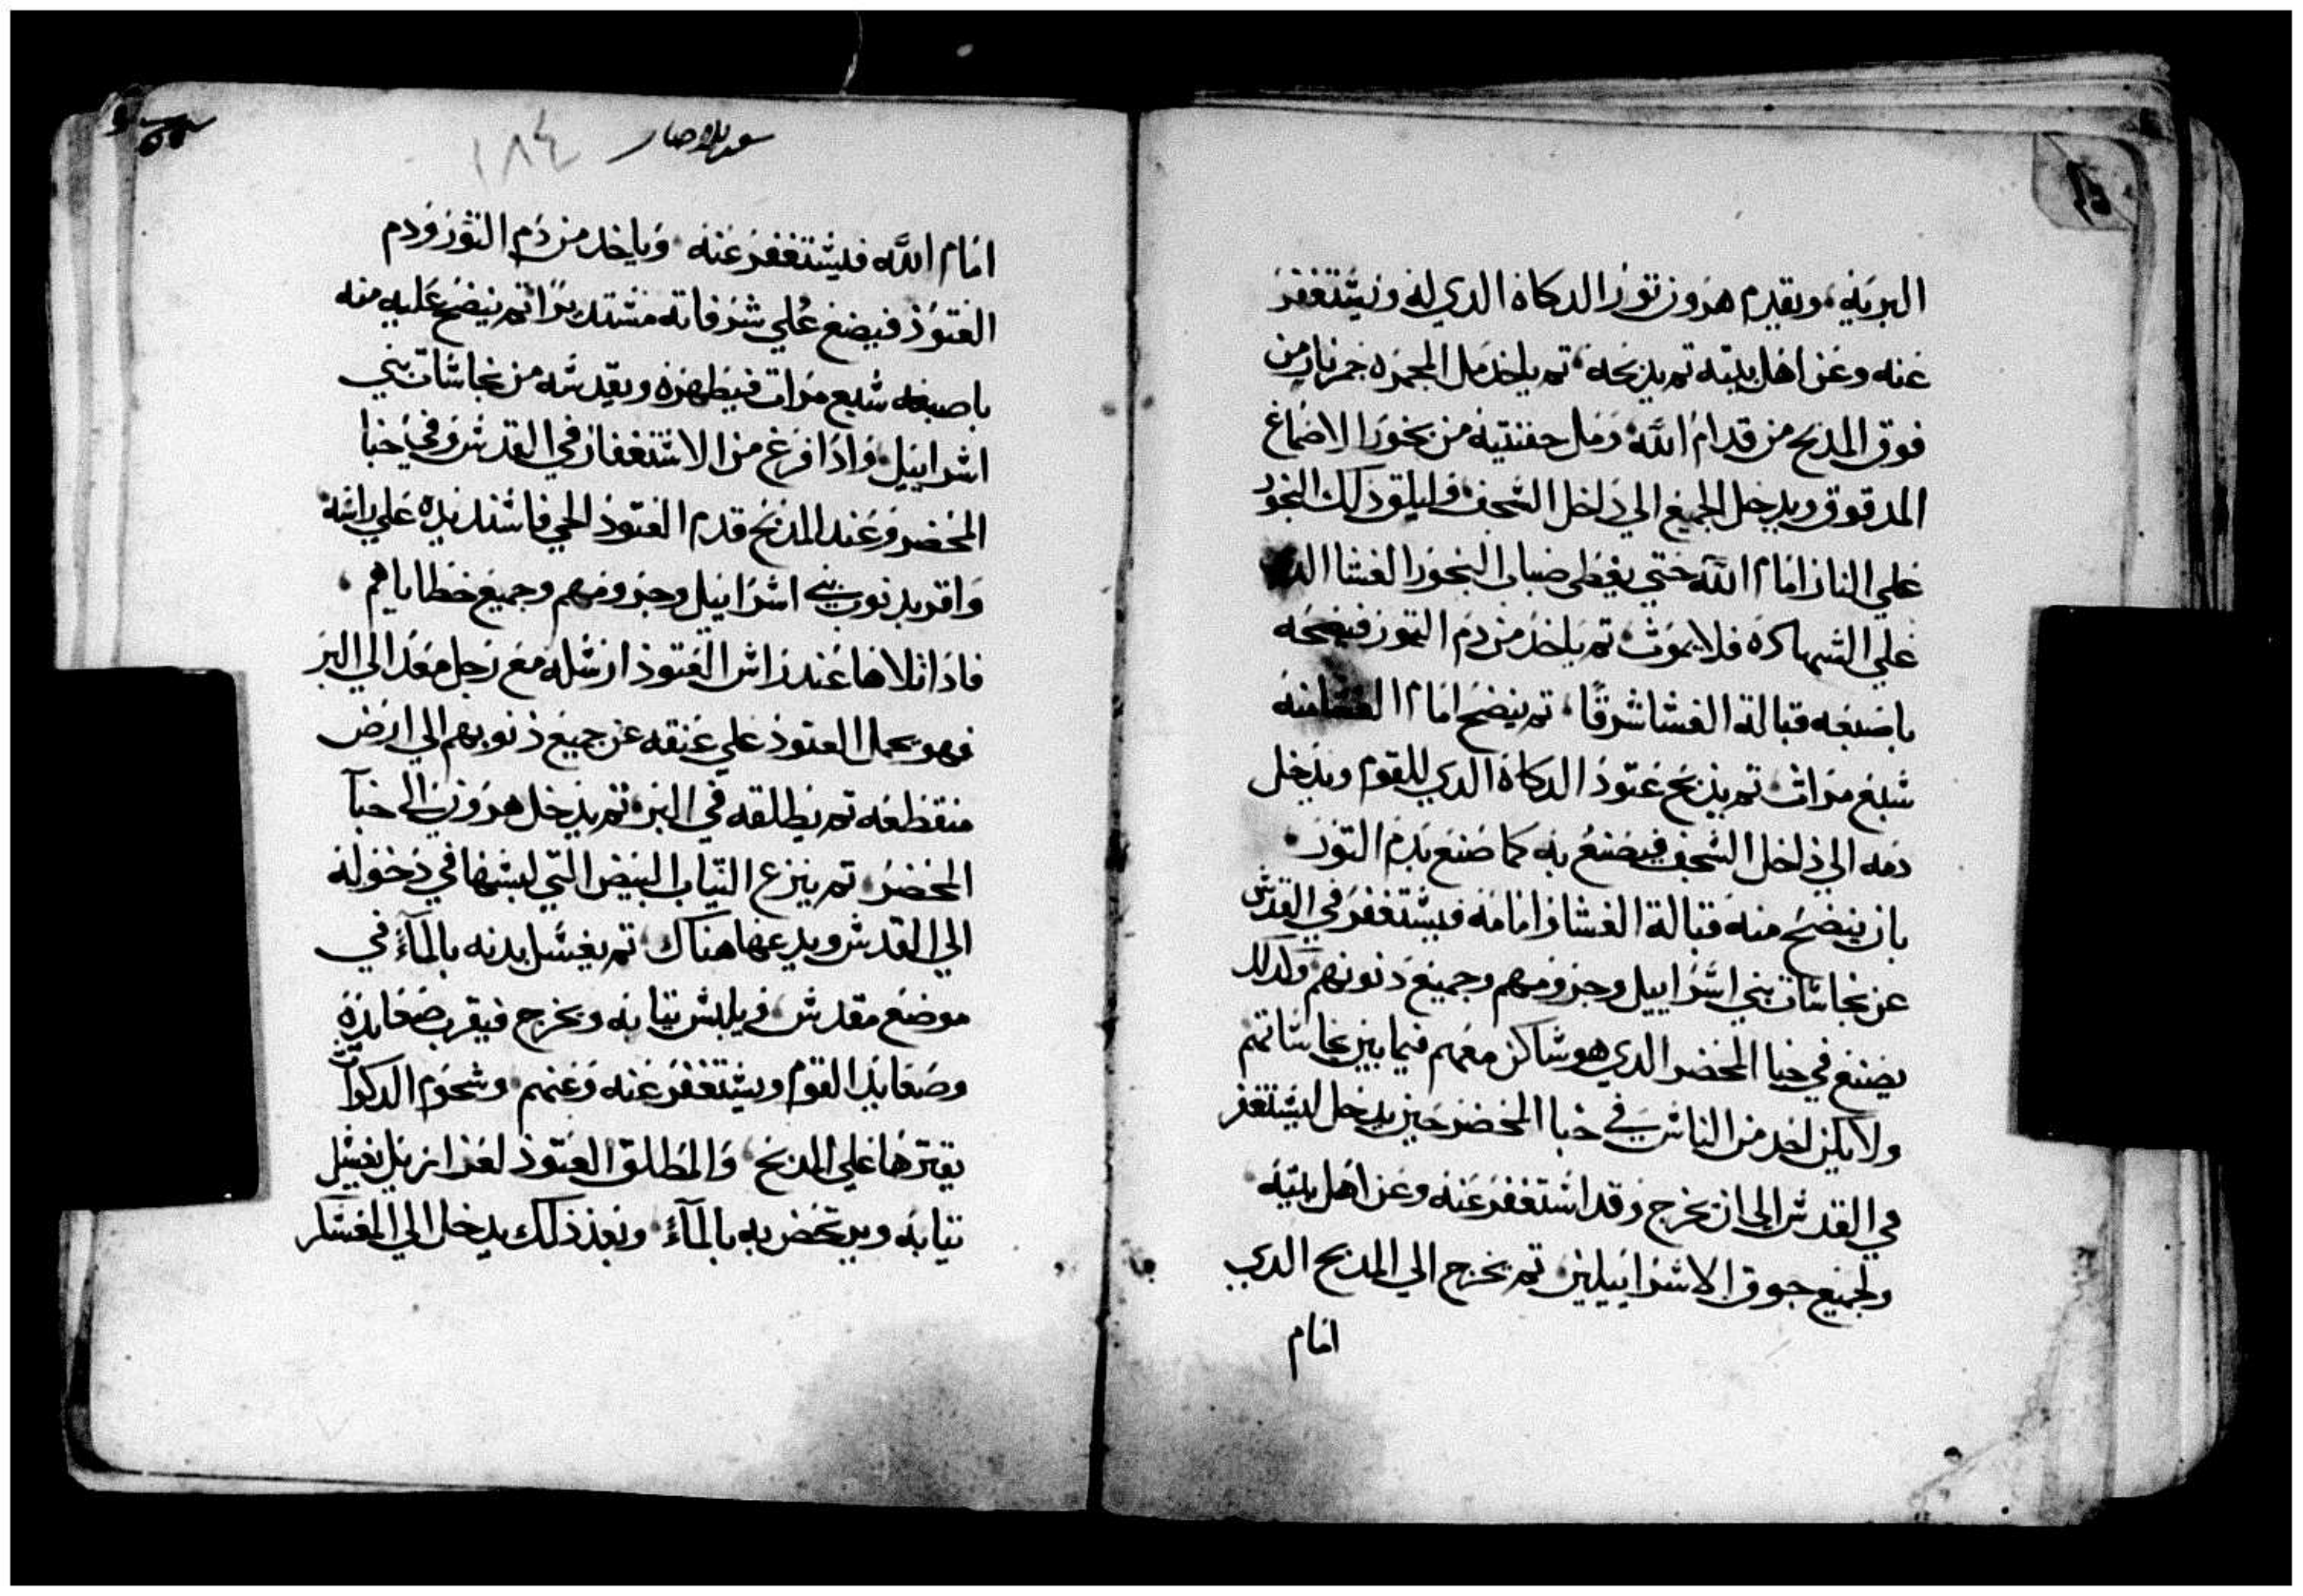 البريه، ويقدم هرون تور الدكاه الدي له ويستغفر
عنه وعن اهل بيته تم يدبحه، تم ياخد مل المجمره جمر نار من
فوق المدبح من قدام الله، ومل حفنتيه من بخور الاصماغ
المدقوق ويدخل الجميع الي داخل السجف، وليلق ذلك البخور
علي النار امام الله حتي يغطي ضباب البخور الغشا
علي الشهاده فلا يموت، تم ياخد من دم التور فينضحه
باصبعه قبالة الغشا شرقا، تم ينضح امام الغشا منه
سبع مرات، تم يدبح عتود الدكاه الدي للقوم ويدخل
دمه الي داخل السجف فيصنع به كما صنع بدم التور،
بان ينضح منه قبالة الغشا وامامه فيستغفر في القدس
عن نجاسات بني اسراييل وجرومهم وجميع دنوبهم وكدلك
يصنع في خبا المحضر الدي هو ساكن معهم فيما بين نجاساتهم
ولا يكن احد من الناس في خبا المحضر حين يدخل ليستغفر
في القدس الي ان يخرج وقد استغفر عنه وعن اهل بيته
ولجميع جوق الاسراييلين، تم يخرج الي المدبح الدي
امام
١٨٤
امام الله فيستغفر عنه، وياخد من دم التور ودم
العتود فيضع علي شرفاته مستديرا تم ينضح عليه منه
باصبعه سبع مرات فيطهره ويقدسه من نجاسات بني
اسراييل، واذا فرغ من الاستغفار في القدس وفي خبا
المحضر وعند المدبح قدم العتود الحي فاسند يده علي راسه
واقر بدنوب بني اسراييل وجرومهم وجميع خطاياهم،
فاذا تلاها عند راس العتود ارسله مع رجل معد الي البر
فهو يحمل العتود علي عنقه عن جميع ذنوبهم الي ارض
منقطعه تم يطلقه في البر، تم يدخل هرون الي خبآ
المحضر، تم ينزع التياب البيض التي لبسها في دخوله
الي القدس ويدعها هناك، تم يغسل بدنه بالمآء في
موضع مقدس، ويلبس تيابه ويخرج فيقرب صعايده
وصعايد القوم ويستغفر عنه وعنهم، وشحوم الدكوات
يقترها علي المدبح، والمطلق العتود لعزازيل يغسل
تيابه ويرتحض بدنه بالمآء، وبعد ذلك يدخل الي المعسكر